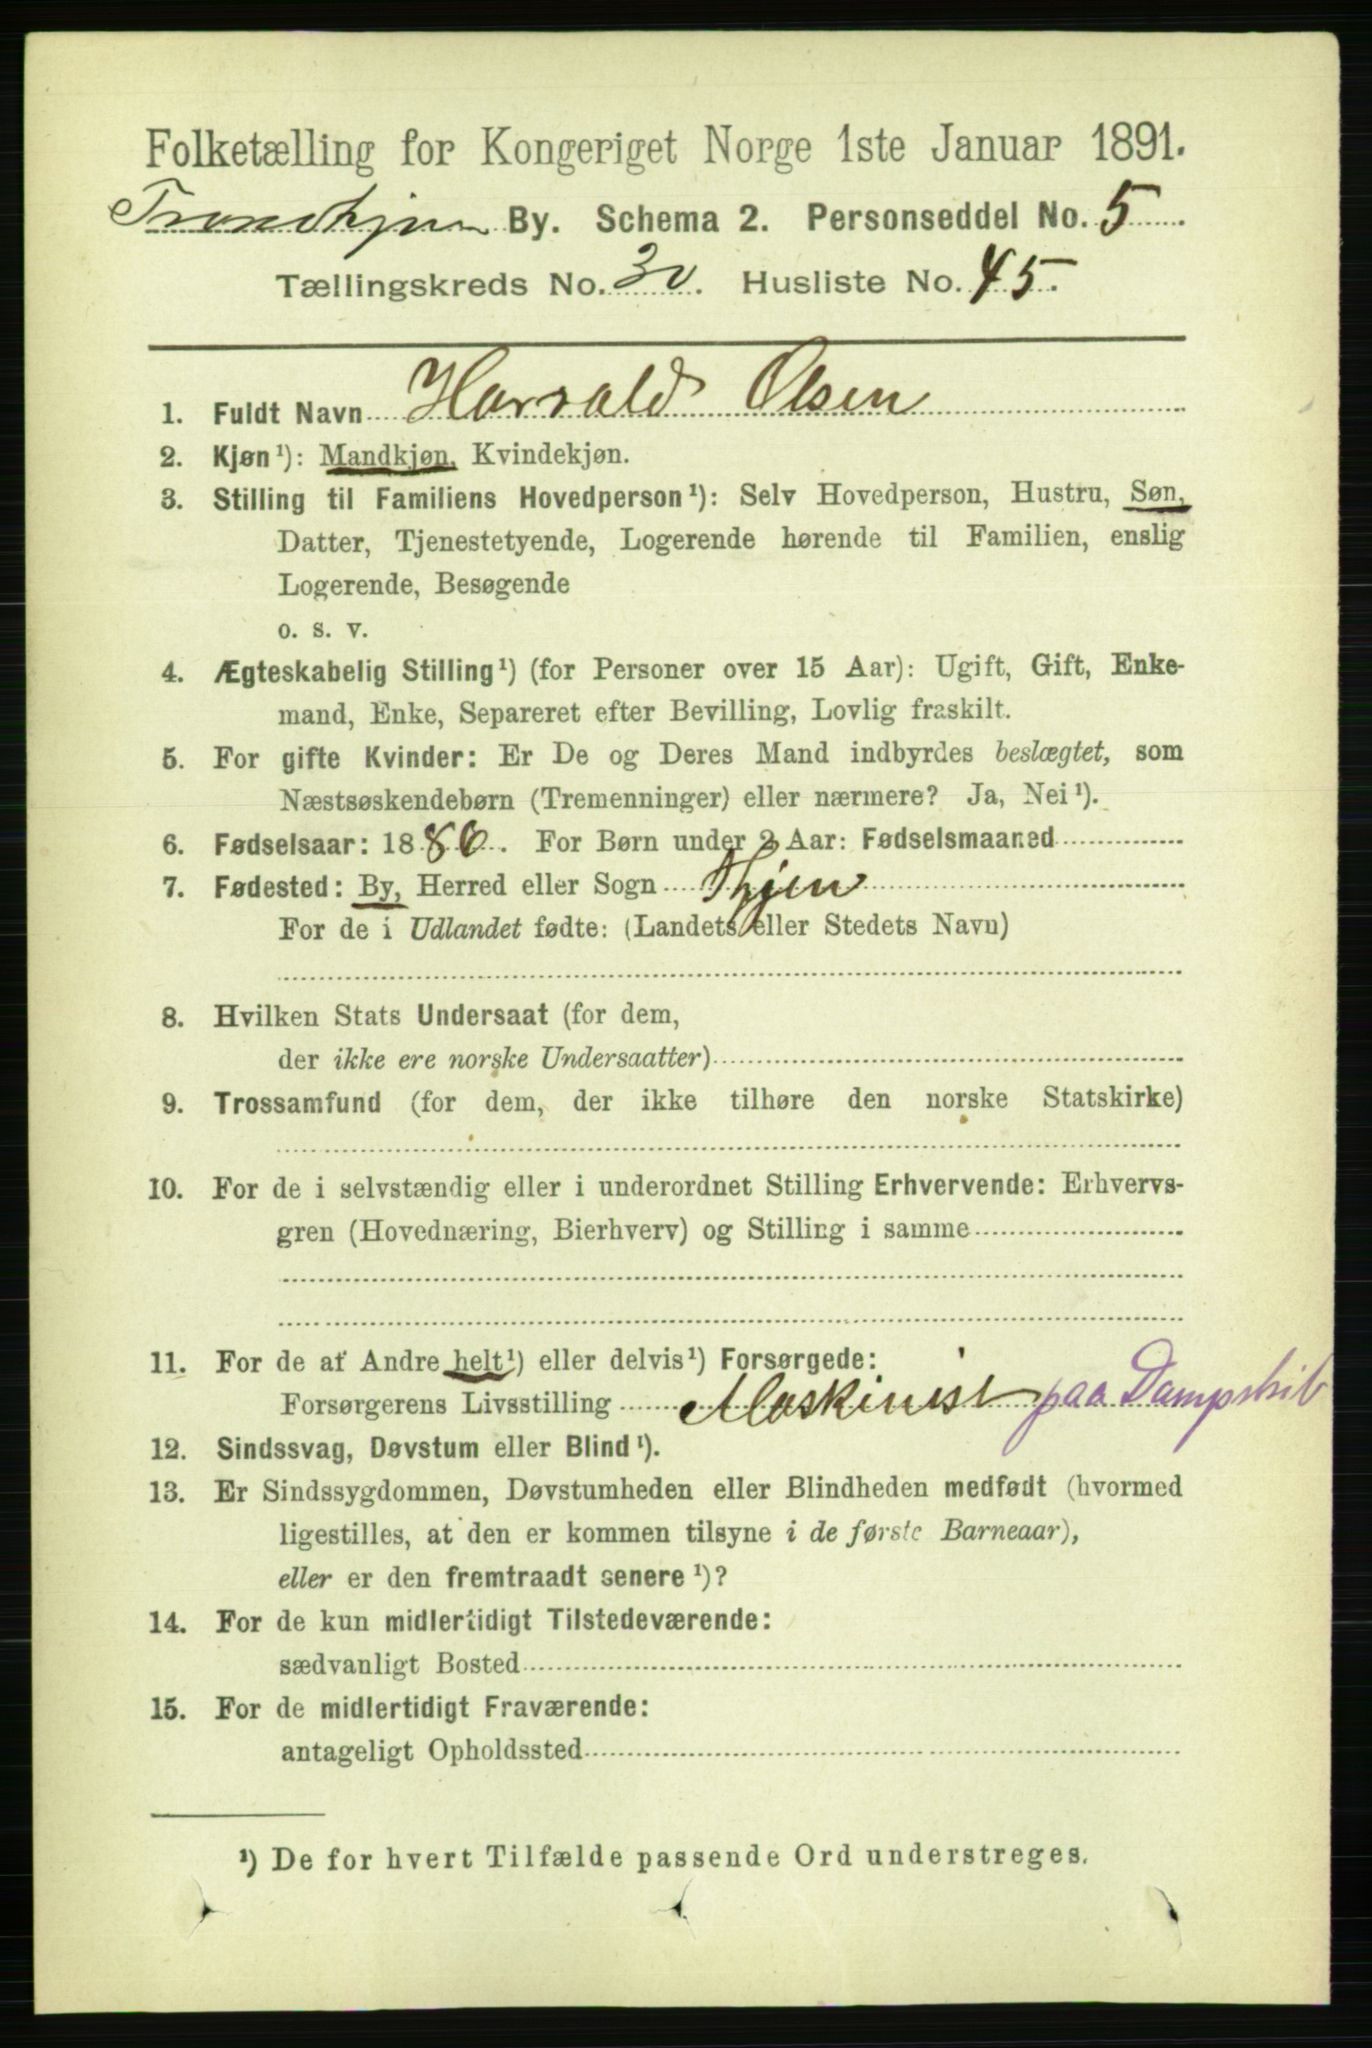 Folketælling for Kongeriget Norge 1ste Januar 1891.
Trondhjem By. Schema 2. Personseddel No. 5
Tællingskreds No. 30. Husliste No. 45.
1. Fuldt Navn Harald Olsen
2. Kjøn¹): Mandkjøn, Kvindekjøn.
3. Stilling til Familiens Hovedperson¹): Selv Hovedperson, Hustru, Søn,
Datter, Tjenestetyende, Logerende hørende til Familien, enslig
Logerende, Besøgende
o. s. v.
4. Ægteskabelig Stilling¹) (for Personer over 15 Aar): Ugift, Gift, Enke-
mand, Enke, Separeret efter Bevilling, Lovlig fraskilt.
5. For gifte Kvinder: Er De og Deres Mand indbyrdes beslægtet, som
Næstsøskendebørn (Tremenninger) eller nærmere? Ja, Nei¹).
6. Fødselsaar: 1886. For Børn under 2 Aar: Fødselsmaaned
7. Fødested: By, Herred eller Sogn Thjem
For de i Udlandet fødte: (Landets eller Stedets Navn)
8. Hvilken Stats Undersaat (for dem,
der ikke ere norske Undersaatter)
9. Trossamfund (for dem, der ikke tilhøre den norske Statskirke)
10. For de i selvstændig eller i underordnet Stilling Erhvervende: Erhvervs-
gren (Hovednæring, Bierhverv) og Stilling i samme
11. For de af Andre helt¹) eller delvis¹) Forsørgede:
Forsørgerens Livsstilling Maskinist paa Dampskib
12. Sindssvag, Døvstum eller Blind¹).
13. Er Sindssygdommen, Døvstumheden eller Blindheden medfødt (hvormed
ligestilles, at den er kommen tilsyne i de første Barneaar),
eller er den fremtraadt senere¹)?
14. For de kun midlertidigt Tilstedeværende:
sædvanligt Bosted
15. For de midlertidigt Fraværende:
antageligt Opholdssted
¹) De for hvert Tilfælde passende Ord understreges.